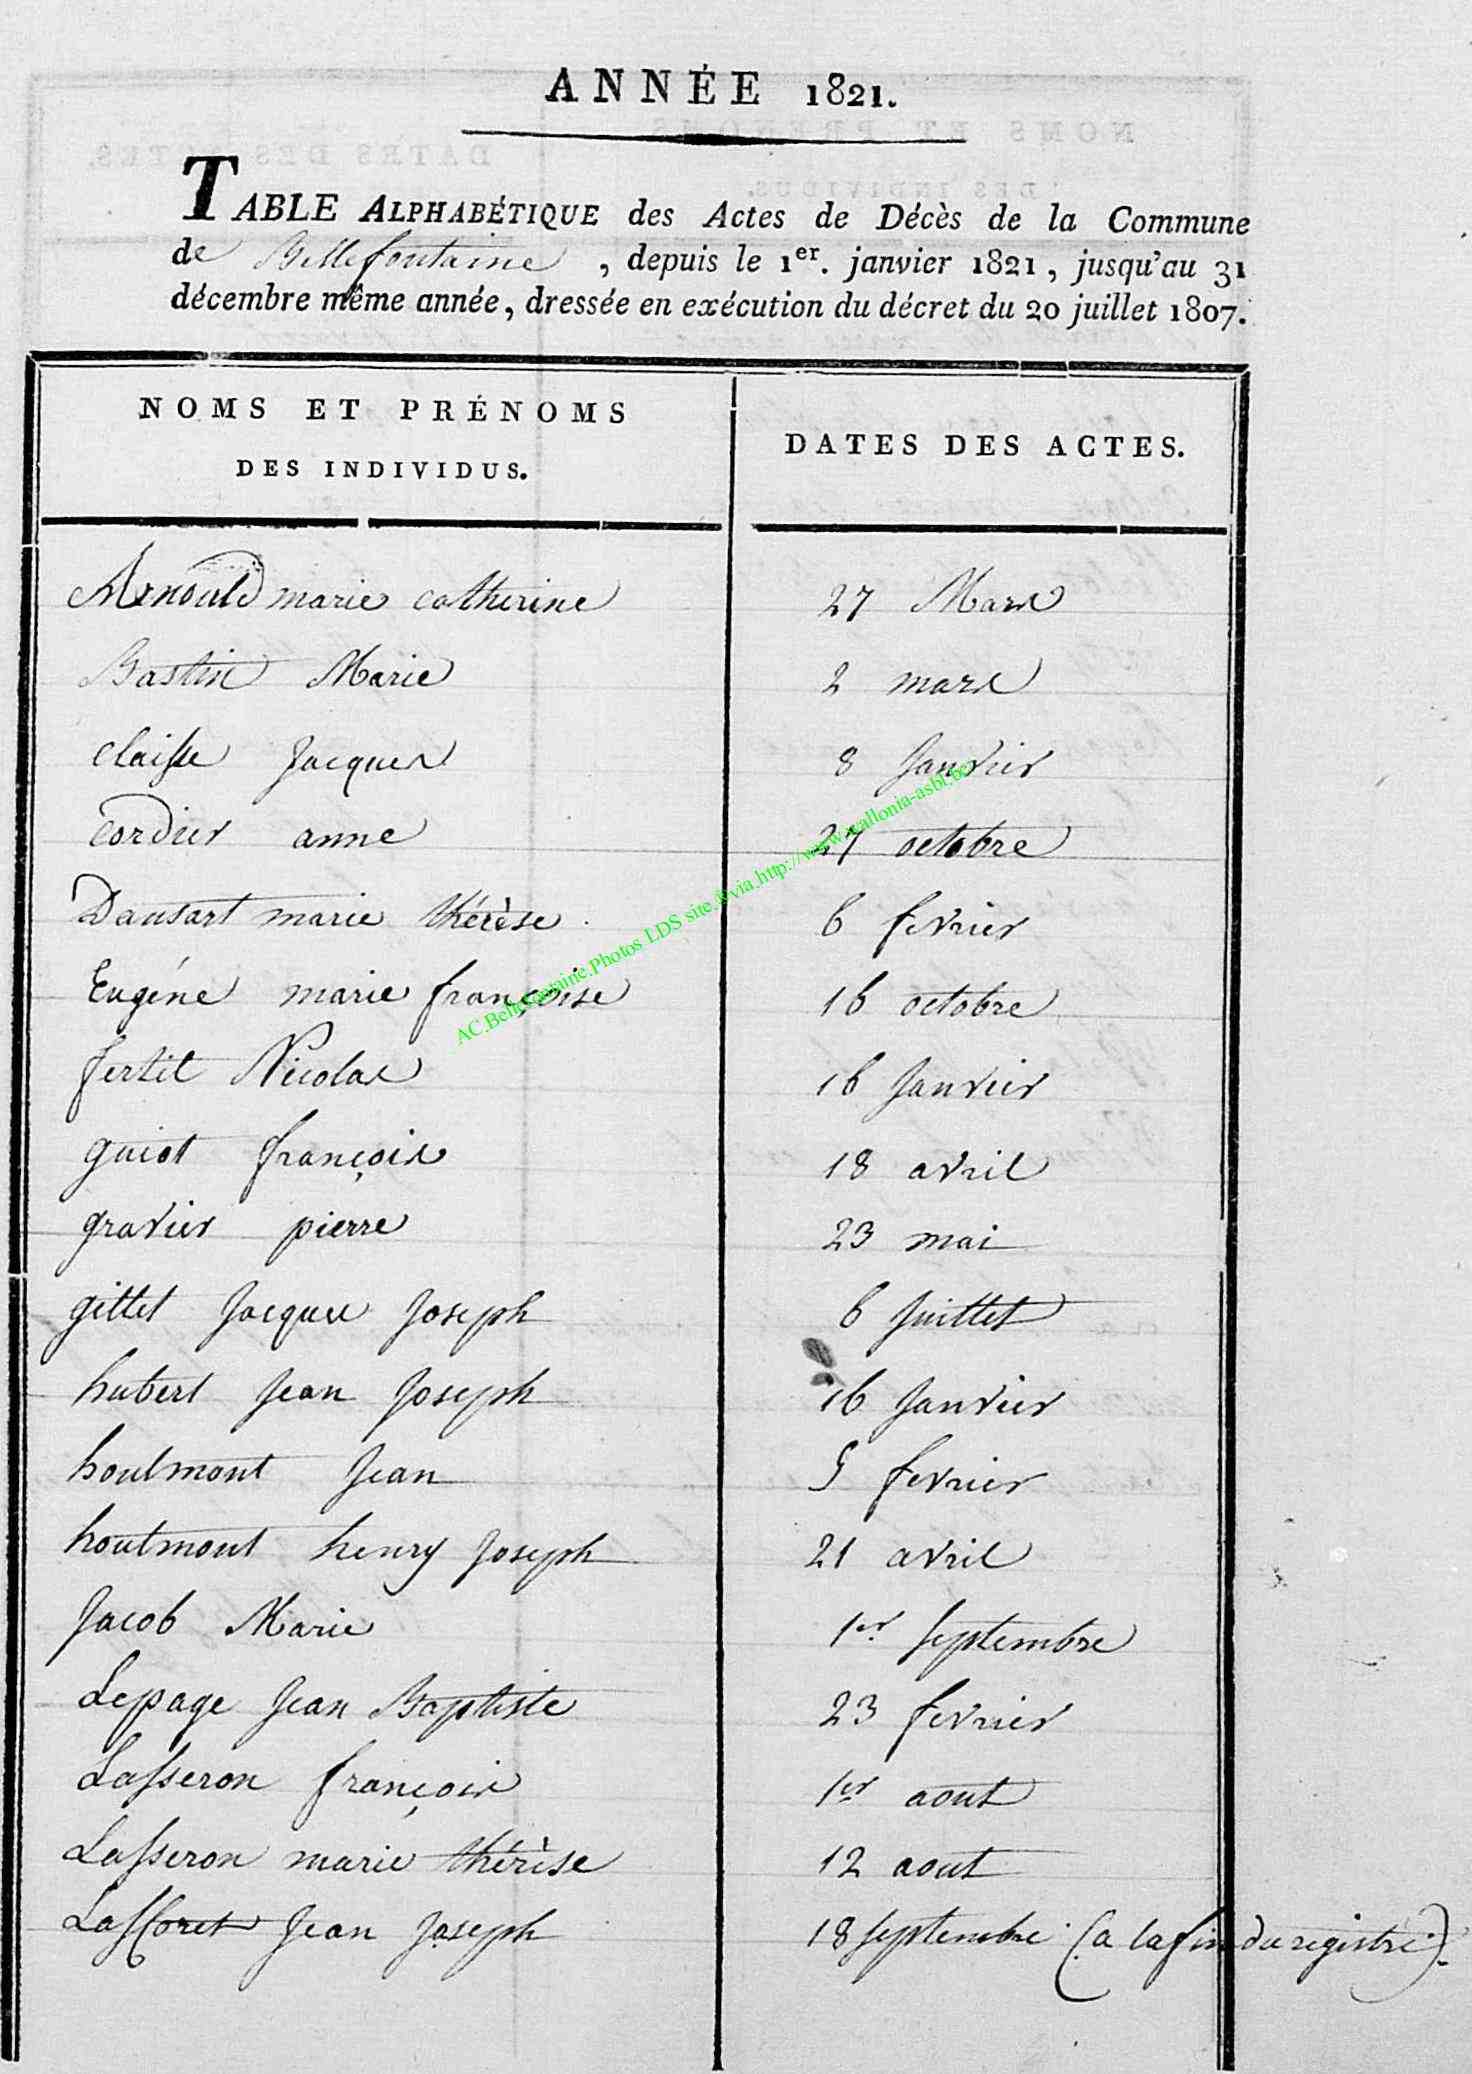 ANNÉE 1821.
TABLE ALPHABÉTIQUE des Actes de Décès de la Commune
de Bellefontaine, depuis le 1er. janvier 1821, jusqu'au 31
décembre même année, dressée en exécution du décret du 20 juillet 1807.
NOMS ET PRÉNOMS
DES INDIVIDUS.
DATES DES ACTES.
Arnould marie catherine 27 Mars
Bastin Marie 2 mars
claisse Jacques 8 Janvier
cordier anne 27 octobre
Dausart marie thérèse 6 fevrier
Eugéne marie françoise 16 octobre
fertil Nicolas 16 Janvier
guiot françois 18 avril
gravier pierre 23 mai
gillet Jacques Joseph 6 Juillet
hubert Jean Joseph 16 Janvier
houlmont Jean 5 fevrier
houlmont henry Joseph 21 avril
Jacob Marie 1er Septembre
Lepage Jean Baptiste 23 fevrier
Lasseron françois 1er aout
Lasseron marie thérèse 12 aout
Jean Joseph 18 Septembre (a la fin du registre).
AC.Bellefontaine.Photos LDS site via http://www.wallonia-asbl.be